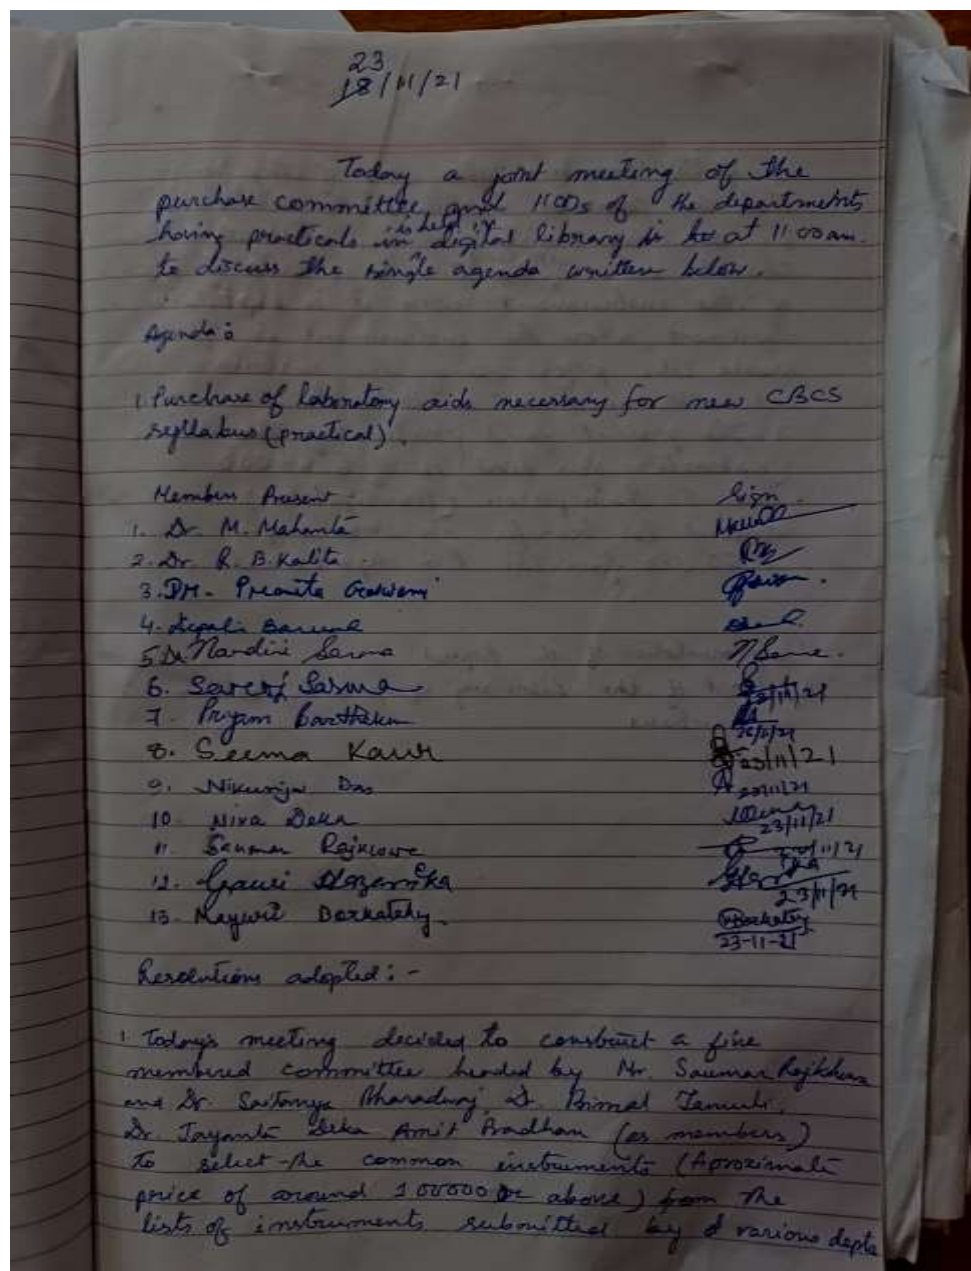 23
18/11/21
Today a joint meeting of the
purchase committee and HODs of the departments
having practicals is held in digital library at 11:00 am.
to discuss the single agenda written below.
Agenda:
1. Purchase of laboratory aids necessary for new CBCS
syllabus (practical).
Members Present - Sign.
1. Dr. M. Mahanta
2. Dr R. B. Kalita
3. Dr. Pranita Goswami
4. Dipali Baruah
5 Dr Nandini Sarma N Sarma.
6. Saroj Sarma
7. Priyam
8. Seema Kaur 23/11/21
9. Nikunja Das 23/11/21
10. Nira Deka 23/11/21
11. Saumar Rajkhowa 23/11/21
12. Gauri Hazarika 23/11/21
13. Mayuri Borkataky. Borkataky
23-11-21
Resolutions adopted: -
1. Today's meeting decided to construct a five
membered committee headed by Mr. Saumar Rajkhowa
and Dr. Saitanya Bharadwaj, Dr. Bimal Tamuli,
Dr. Jayanta Deka Amit Pradhan (as members)
to select the common instruments (Aproximate
price of around 100000 or above) from the
lists of instruments submitted by various depts